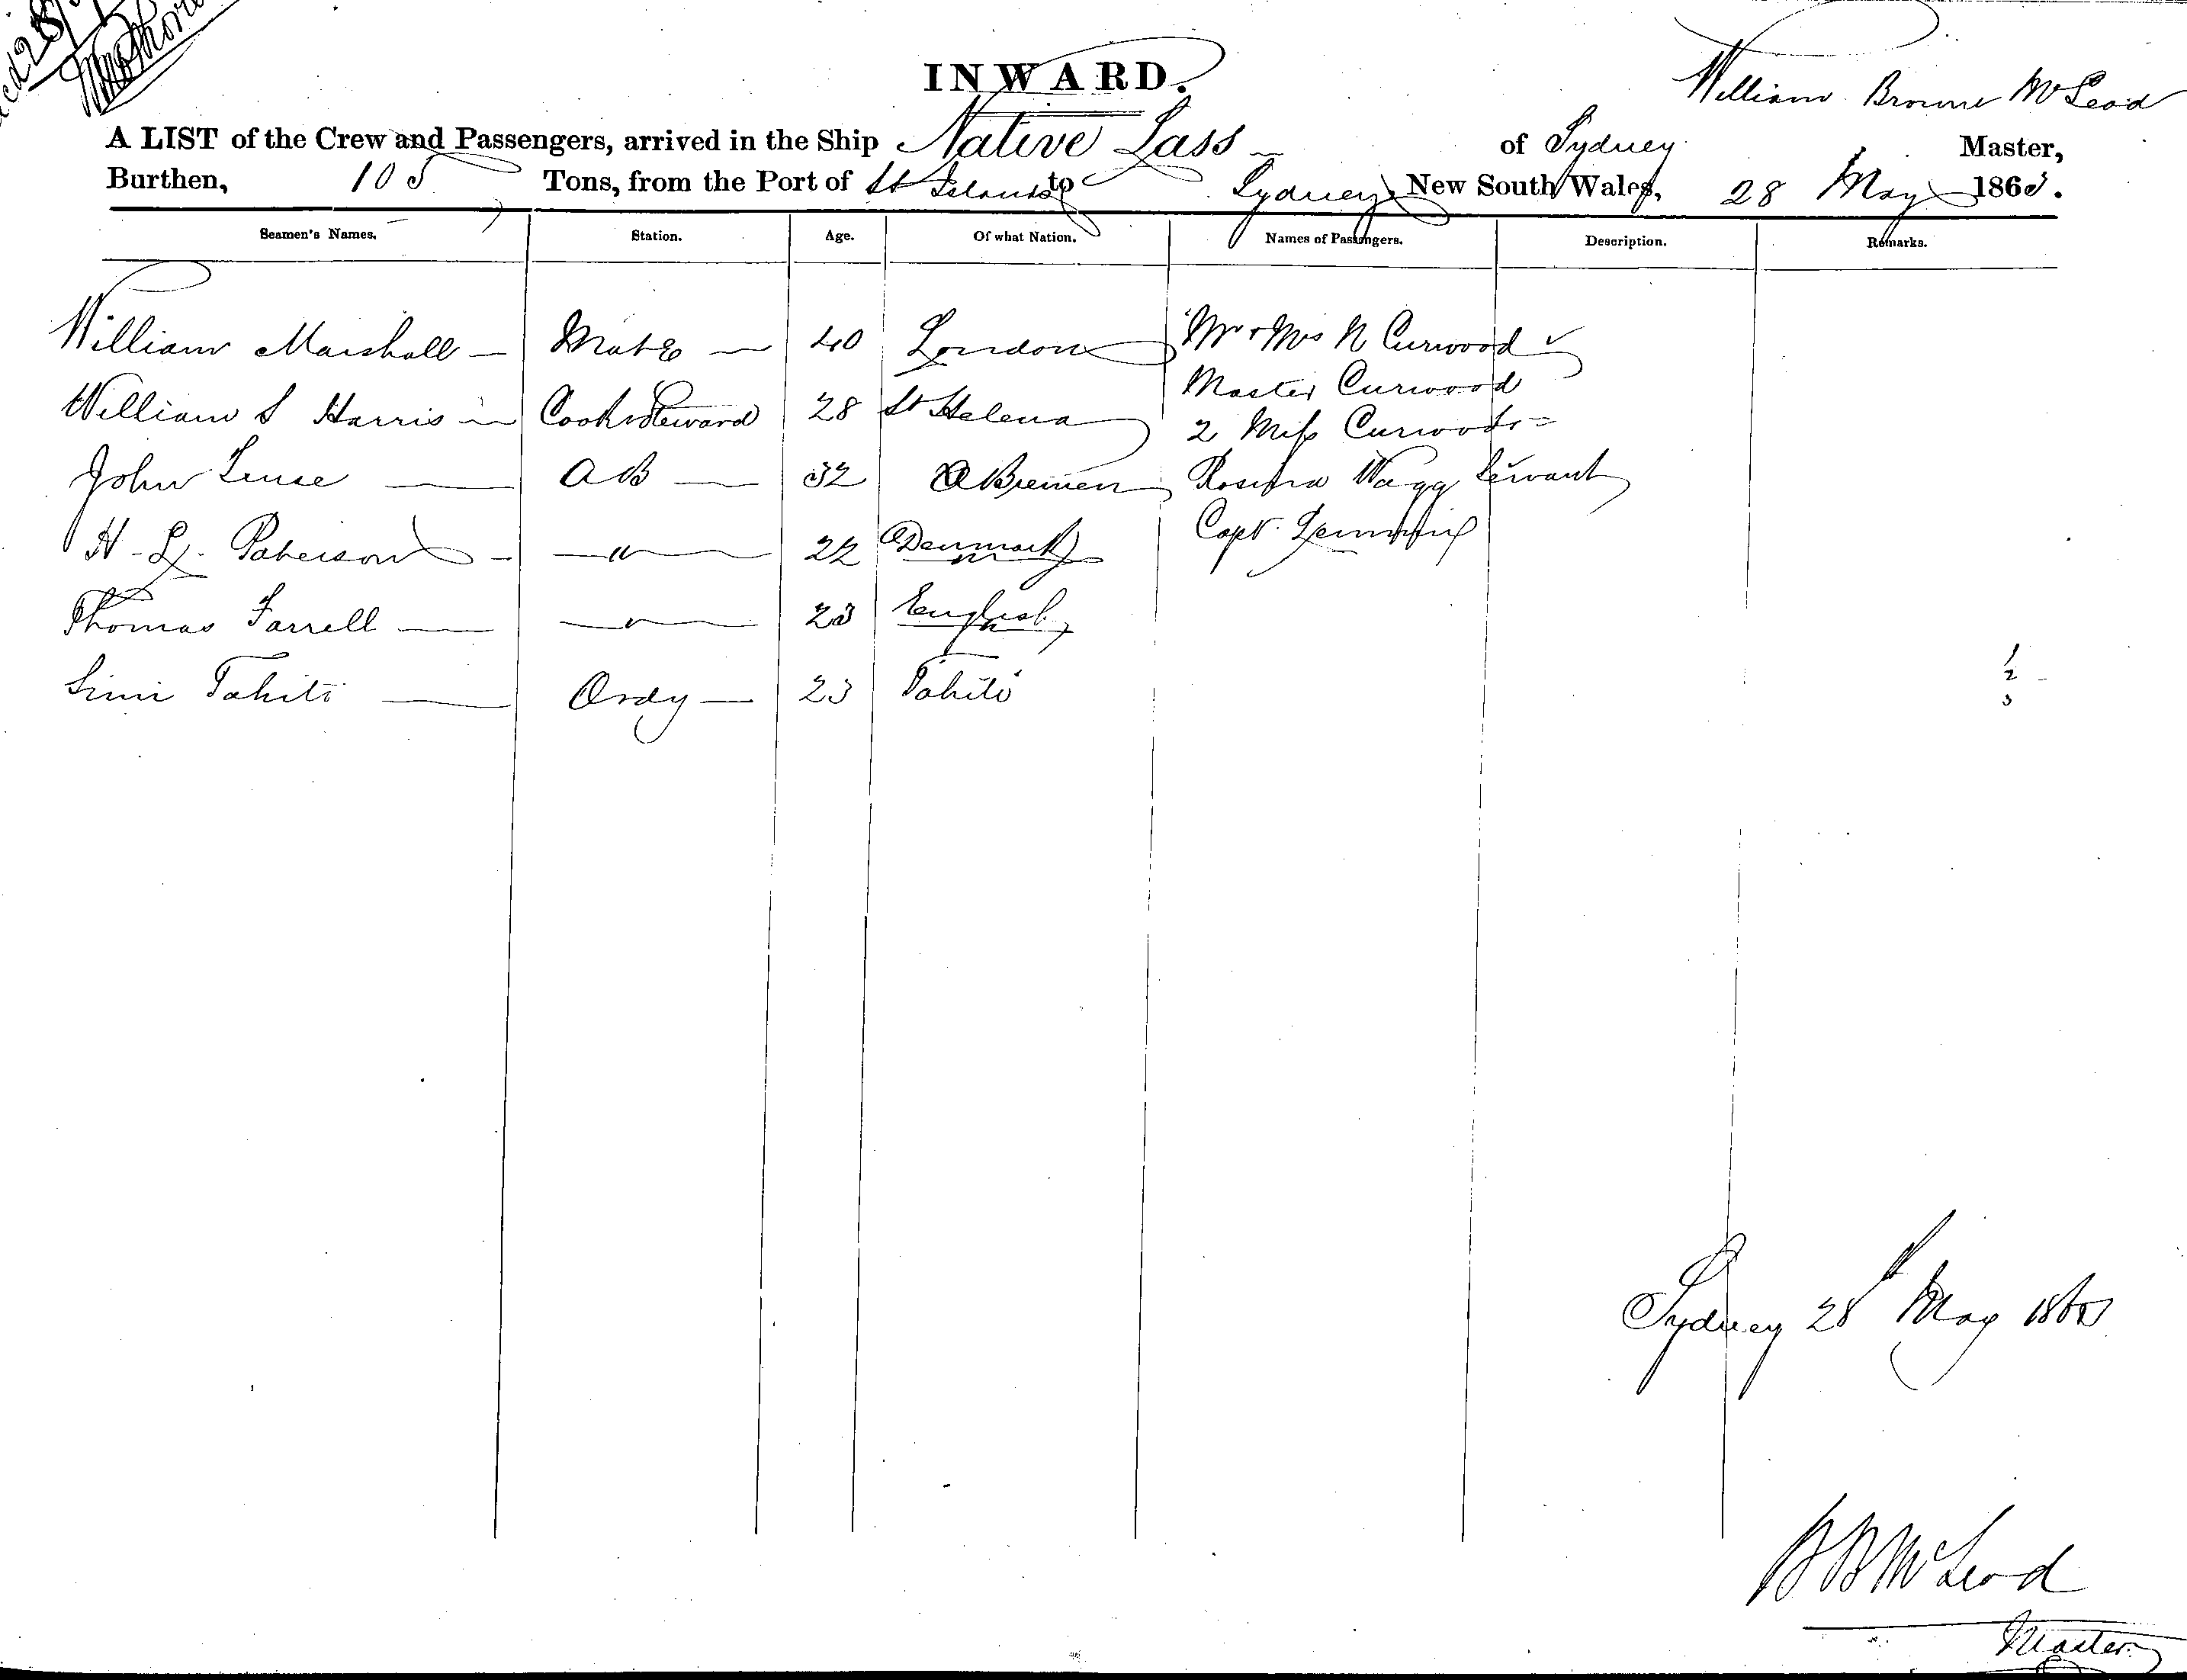 INWARD.
William Browne McLeod
A LIST of the Crew and Passengers, arrived in the Ship Native Lass of Sydney Master,
Burthen, 105 Tons, from the Port of St Islands to Sydney New South Wales, 28 May 1863.
Seamen's Names. Station. Age. Of what Nation. Names of Passengers. Description. Remarks.
William Marshall — Mate — 40 London Mr & Mrs N Curwood
Master Curwood
William S Harris Cook & Steward 28 St Helena 2 Miss Curwoods
John — AB — 32 Bremen Rosina Wagg Servant
H. L. Paterson — " — 22 Denmark Capt.
Thomas Farrell — " — 23 English
Tahiti — Ordy — 23 Tahiti
1
2
3
Sydney 28 May
McLeod
Master